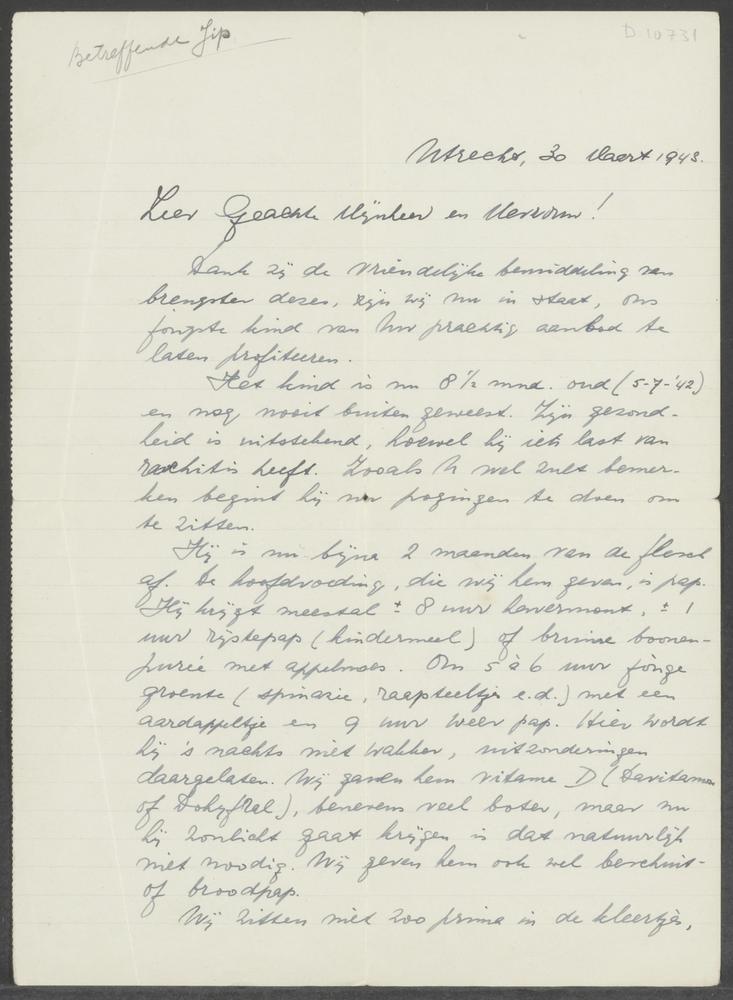 Betreffende Jip
D 10731
Utrecht, 30 Maart 1943.
Zeer Geachte Mijnheer en Mevrouw!
Dank zij de vriendelijke bemiddeling van
brengster dezes, zijn wij nu in staat, ons
jongste kind van Uw prachtig aanbod te
laten profiteeren.
Het kind is nu 8 1/2 mnd. oud (5-7-'42)
en nog nooit buiten geweest. Zijn gezond-
heid is uitstekend, hoewel hij iets last van
rachitis heeft. Zooals U wel zult bemer-
ken begint hij nu pogingen te doen om
te zitten.
Hij is nu bijna 2 maanden van de flesch
af. De hoofdvoeding, die wij hem geven, is pap.
Hij krijgt meestal ± 8 uur havermout, ± 1
uur rijstepap (kindermeel) of bruine boonen-
purée met appelmoes. Om 5 à 6 uur jonge
groente (spinazie, raapsteeltjes e.d.) met een
aardappeltje en 9 uur weer pap. Hier wordt
hij 's nachts niet wakker, uitzonderingen
daargelaten. Wij gaven hem vitamine D (Davitamon
of Dohyfral), benevens veel boter, maar nu
hij zonlicht gaat krijgen is dat natuurlijk
niet noodig. Wij geven hem ook wel beschuit-
of broodpap.
Wij zitten niet zoo prima in de kleertjes,